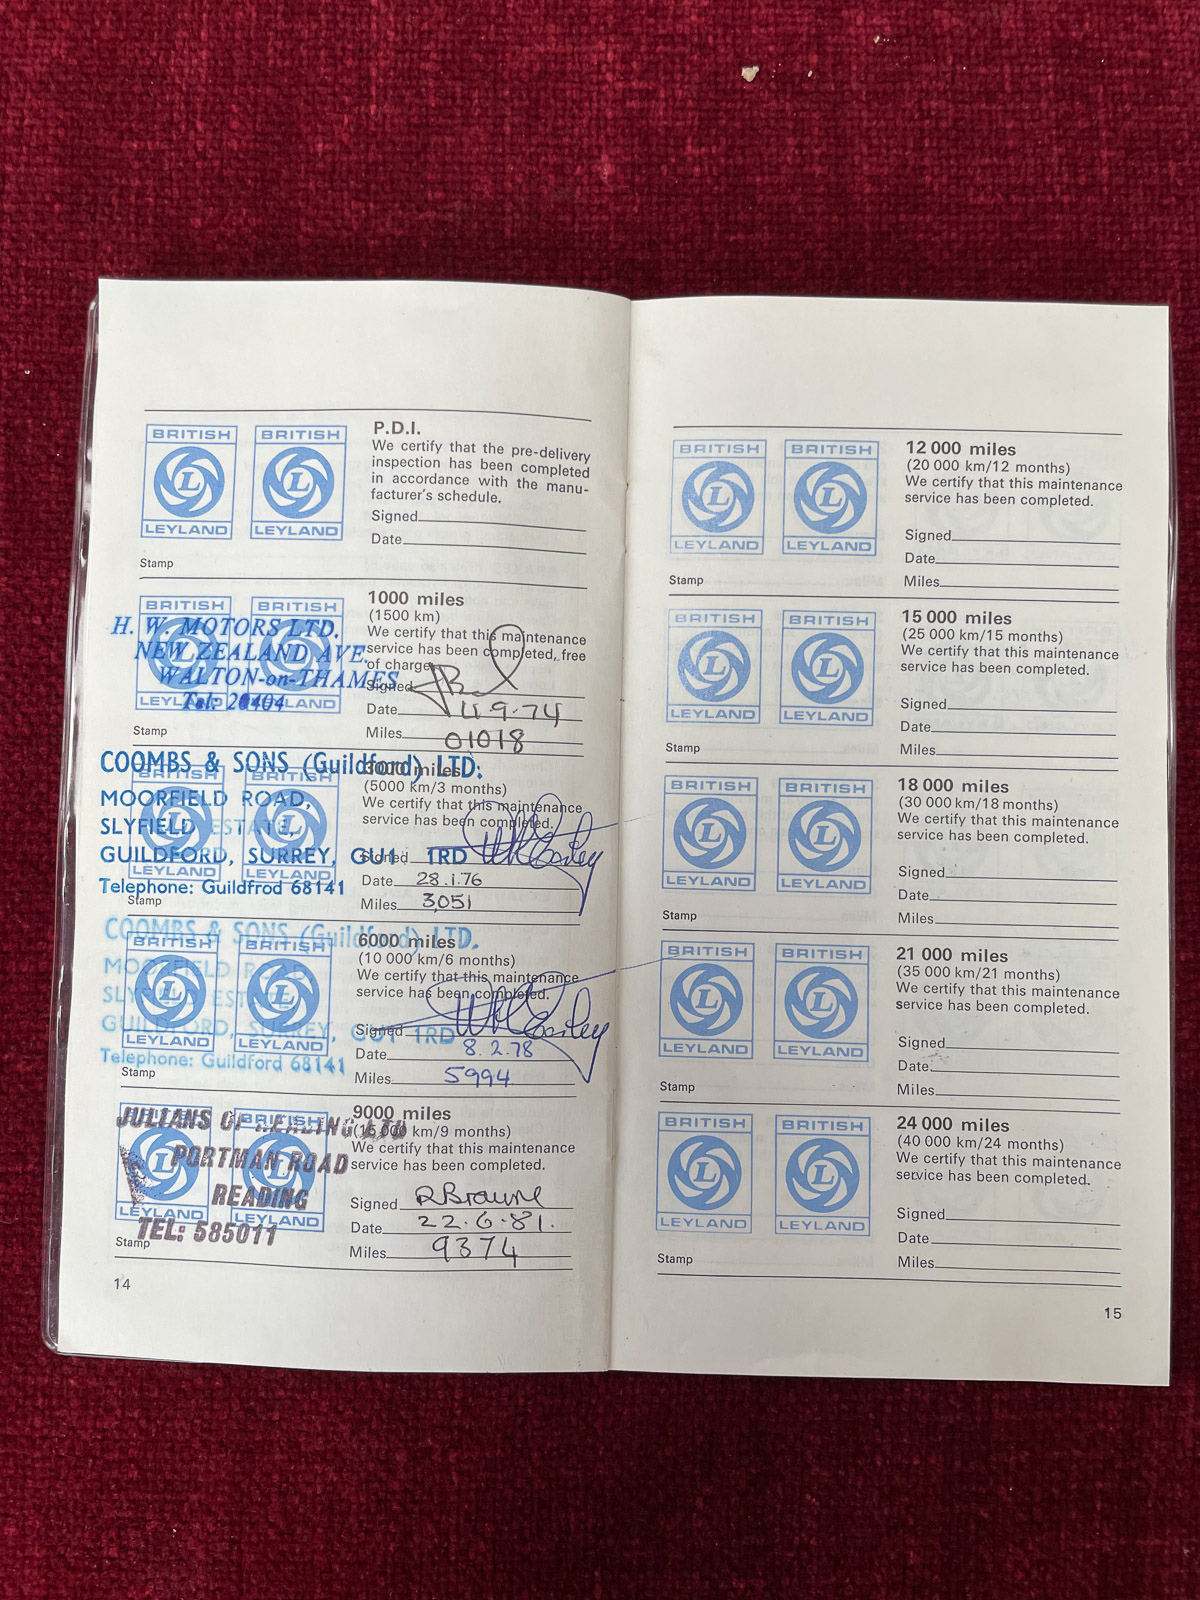 BRITISH BRITISH
L L
LEYLAND LEYLAND
Stamp
P.D.I.
We certify that the pre-delivery
inspection has been completed
in accordance with the manu-
facturer's schedule.
Signed
Date
BRITISH BRITISH
LEYLAND
H. W. MOTORS LTD.
NEW ZEALAND AVE.
WALTON-on-THAMES
Tel: 20404
Stamp
1000 miles
(1500 km)
We certify that this maintenance
service has been completed, free
of charge
Signed
Date 11.9.74
Miles 01018
COOMBS & SONS (Guildford) LTD:
MOORFIELD ROAD,
SLYFIELD ESTATE,
GUILDFORD, SURREY, GU1 1RD
Telephone: Guildfrod 68141
BRITISH BRITISH
LEYLAND LEYLAND
Stamp
3000 miles
(5000 km/3 months)
We certify that this maintenance
service has been completed.
Signed
Date 28.1.76
Miles 3,051
COOMBS & SONS (Guildford) LTD.
MOORFIELD ROAD,
SLYFIELD ESTATE,
GUILDFORD, SURREY, GU1 1RD
Telephone: Guildford 68141
BRITISH BRITISH
L L
LEYLAND LEYLAND
Stamp
6000 miles
(10 000 km/6 months)
We certify that this maintenance
service has been completed.
Signed
Date 8.2.78
Miles 5994
JULIANS OF READING LTD
PORTMAN ROAD
READING
TEL: 585011
BRITISH BRITISH
L L
LEYLAND LEYLAND
Stamp
9000 miles
(15 000 km/9 months)
We certify that this maintenance
service has been completed.
Signed R Browne
Date 22.6.81.
Miles 9374
14
BRITISH BRITISH
L L
LEYLAND LEYLAND
Stamp
12 000 miles
(20 000 km/12 months)
We certify that this maintenance
service has been completed.
Signed
Date
Miles
BRITISH BRITISH
L L
LEYLAND LEYLAND
Stamp
15 000 miles
(25 000 km/15 months)
We certify that this maintenance
service has been completed.
Signed
Date
Miles
BRITISH BRITISH
L L
LEYLAND LEYLAND
Stamp
18 000 miles
(30 000 km/18 months)
We certify that this maintenance
service has been completed.
Signed
Date
Miles
BRITISH BRITISH
L L
LEYLAND LEYLAND
Stamp
21 000 miles
(35 000 km/21 months)
We certify that this maintenance
service has been completed.
Signed
Date
Miles
BRITISH BRITISH
L L
LEYLAND LEYLAND
Stamp
24 000 miles
(40 000 km/24 months)
We certify that this maintenance
service has been completed.
Signed
Date
Miles
15